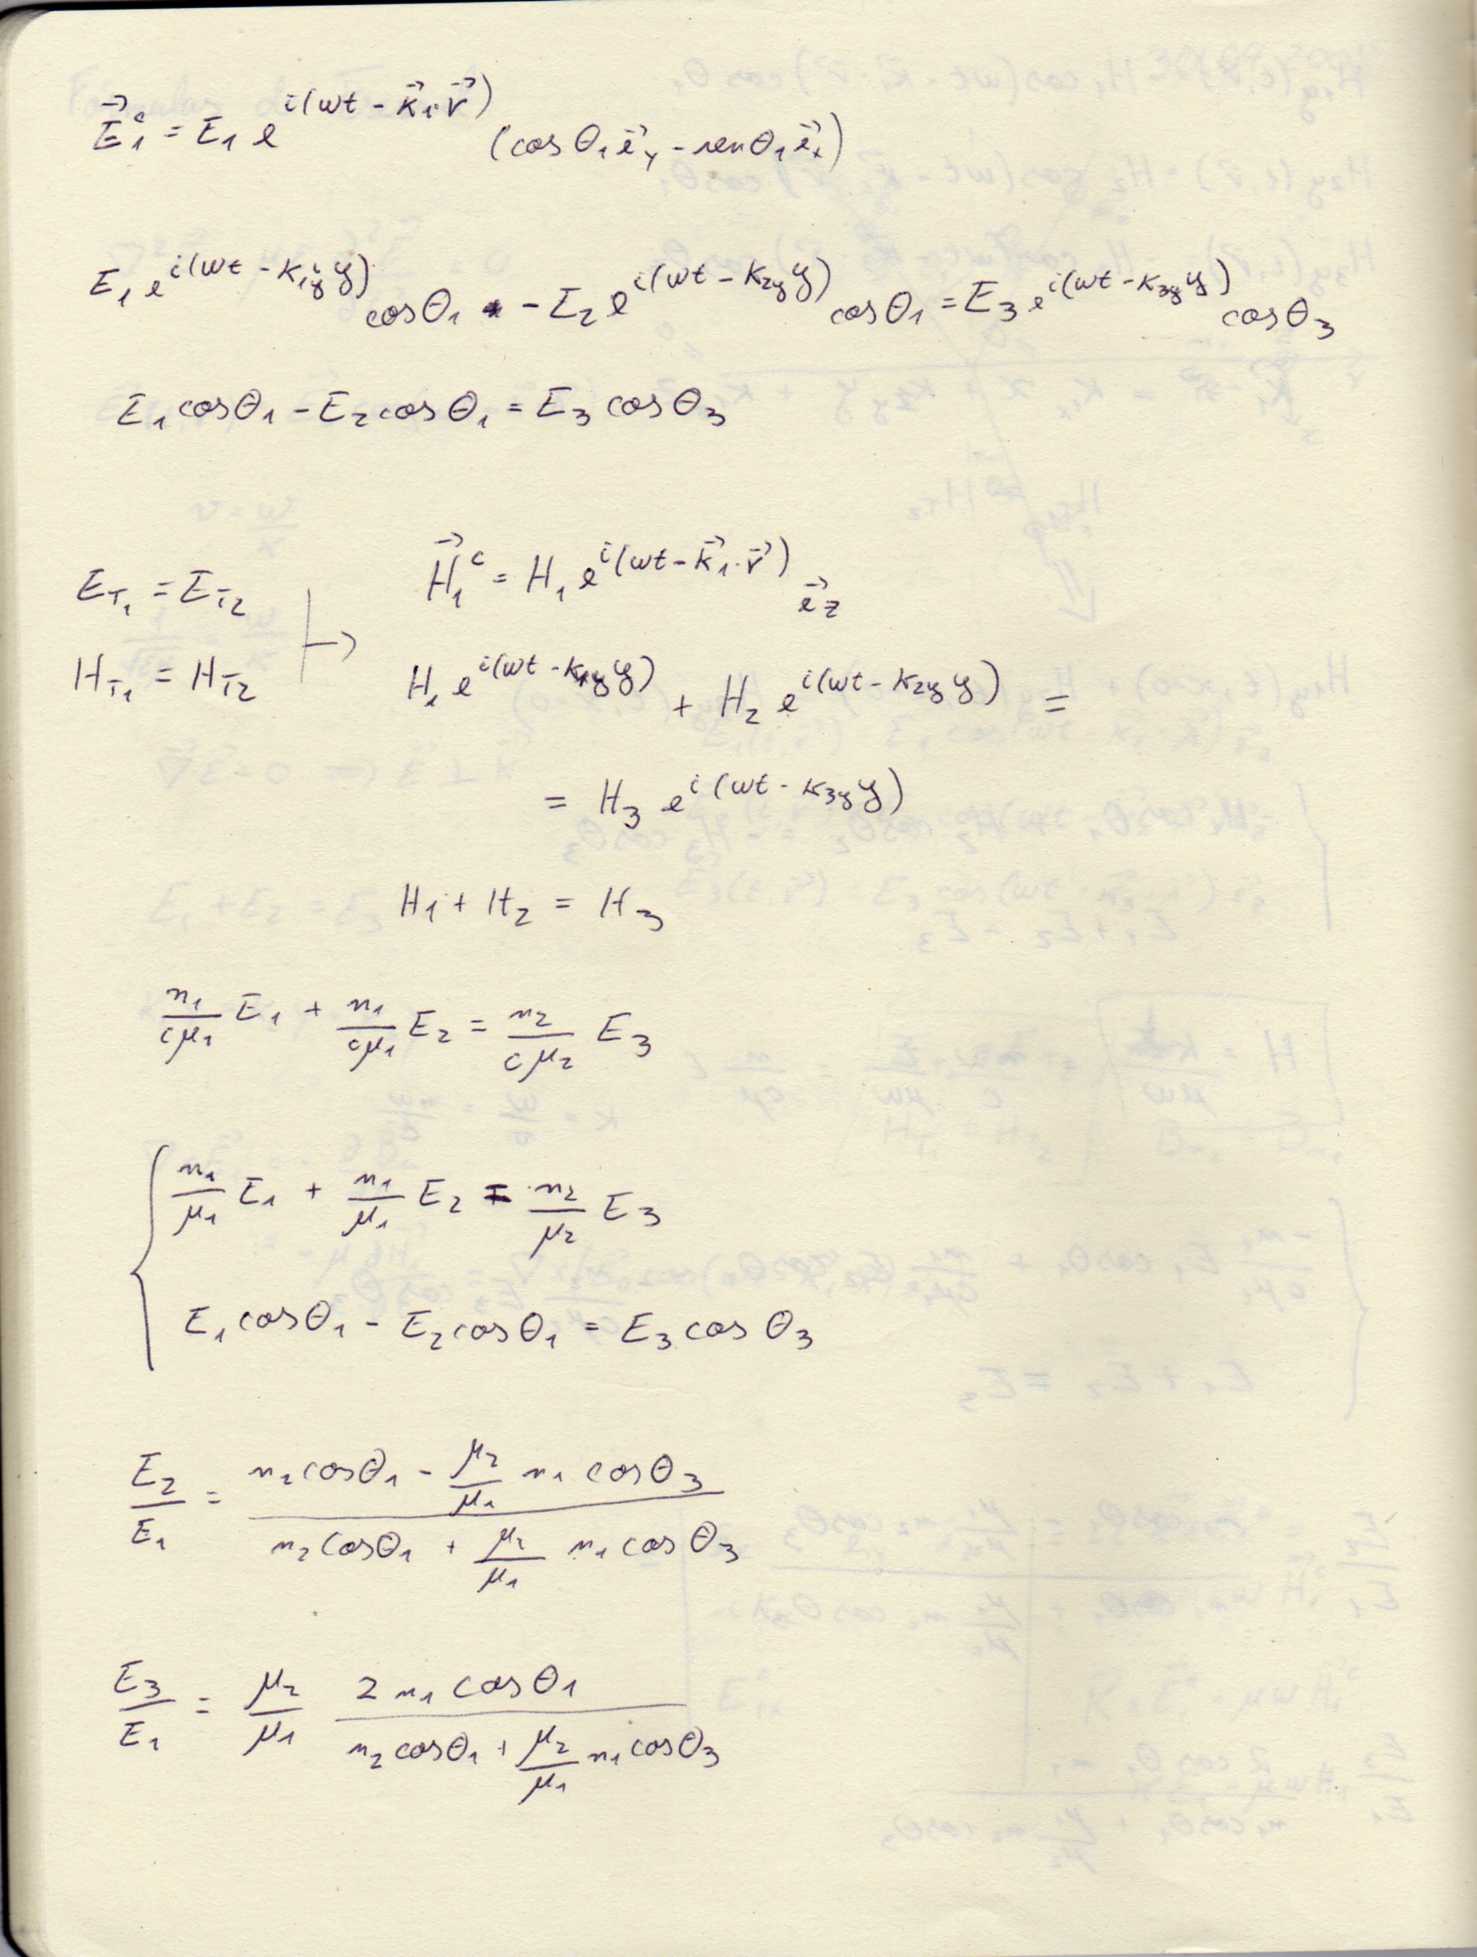 E⃗₁ᶜ = E₁ e^{i(ωt - k⃗₁·r⃗)} (cos θ₁ e⃗_y - sen θ₁ e⃗_x)
E₁ e^{i(ωt - k₁y y)} cos θ₁ - E₂ e^{i(ωt - k₂y y)} cos θ₁ = E₃ e^{i(ωt - k₃y y)} cos θ₃
E₁ cos θ₁ - E₂ cos θ₁ = E₃ cos θ₃
H⃗₁ᶜ = H₁ e^{i(ωt - k⃗₁·r⃗)} e⃗_z
E_T₁ = E_T₂
H_T₁ = H_T₂
H₁ e^{i(ωt - k₁y y)} + H₂ e^{i(ωt - k₂y y)} =
= H₃ e^{i(ωt - k₃y y)}
H₁ + H₂ = H₃
n₁/cμ₁ E₁ + n₁/cμ₁ E₂ = n₂/cμ₂ E₃
n₁/μ₁ E₁ + n₁/μ₁ E₂ = n₂/μ₂ E₃
E₁ cos θ₁ - E₂ cos θ₁ = E₃ cos θ₃
E₂/E₁ = (n₂ cos θ₁ - μ₂/μ₁ n₁ cos θ₃)/(n₂ cos θ₁ + μ₂/μ₁ n₁ cos θ₃)
E₃/E₁ = μ₂/μ₁ (2 n₁ cos θ₁)/(n₂ cos θ₁ + μ₂/μ₁ n₁ cos θ₃)